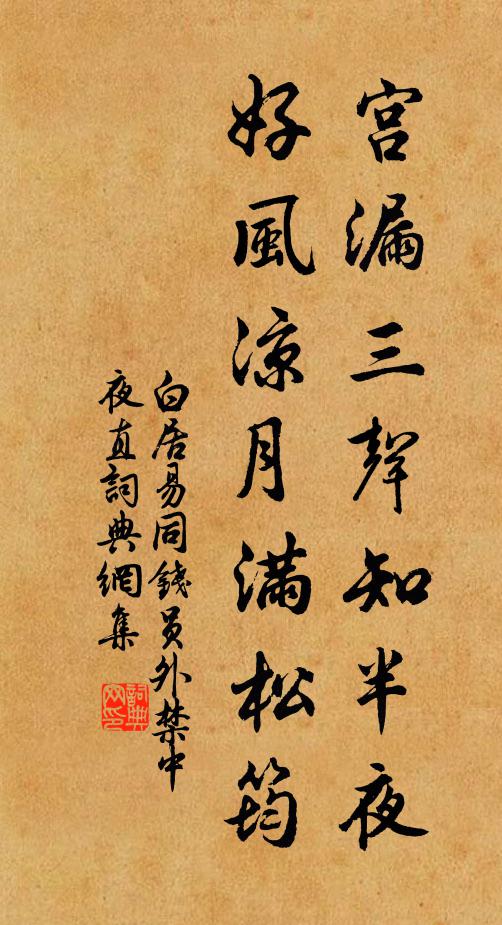 宫漏三聲知半夜
好風凉月满松筠
白居易同錢員外禁中
夜直詞典網集
詞典
网印